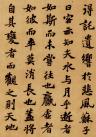 得託遺響於悲風蘇子
曰客亦知夫水與月乎逝者
如斯而未嘗往也盈虛者
如彼而卒莫消長也蓋將
自其變者而觀之則天地